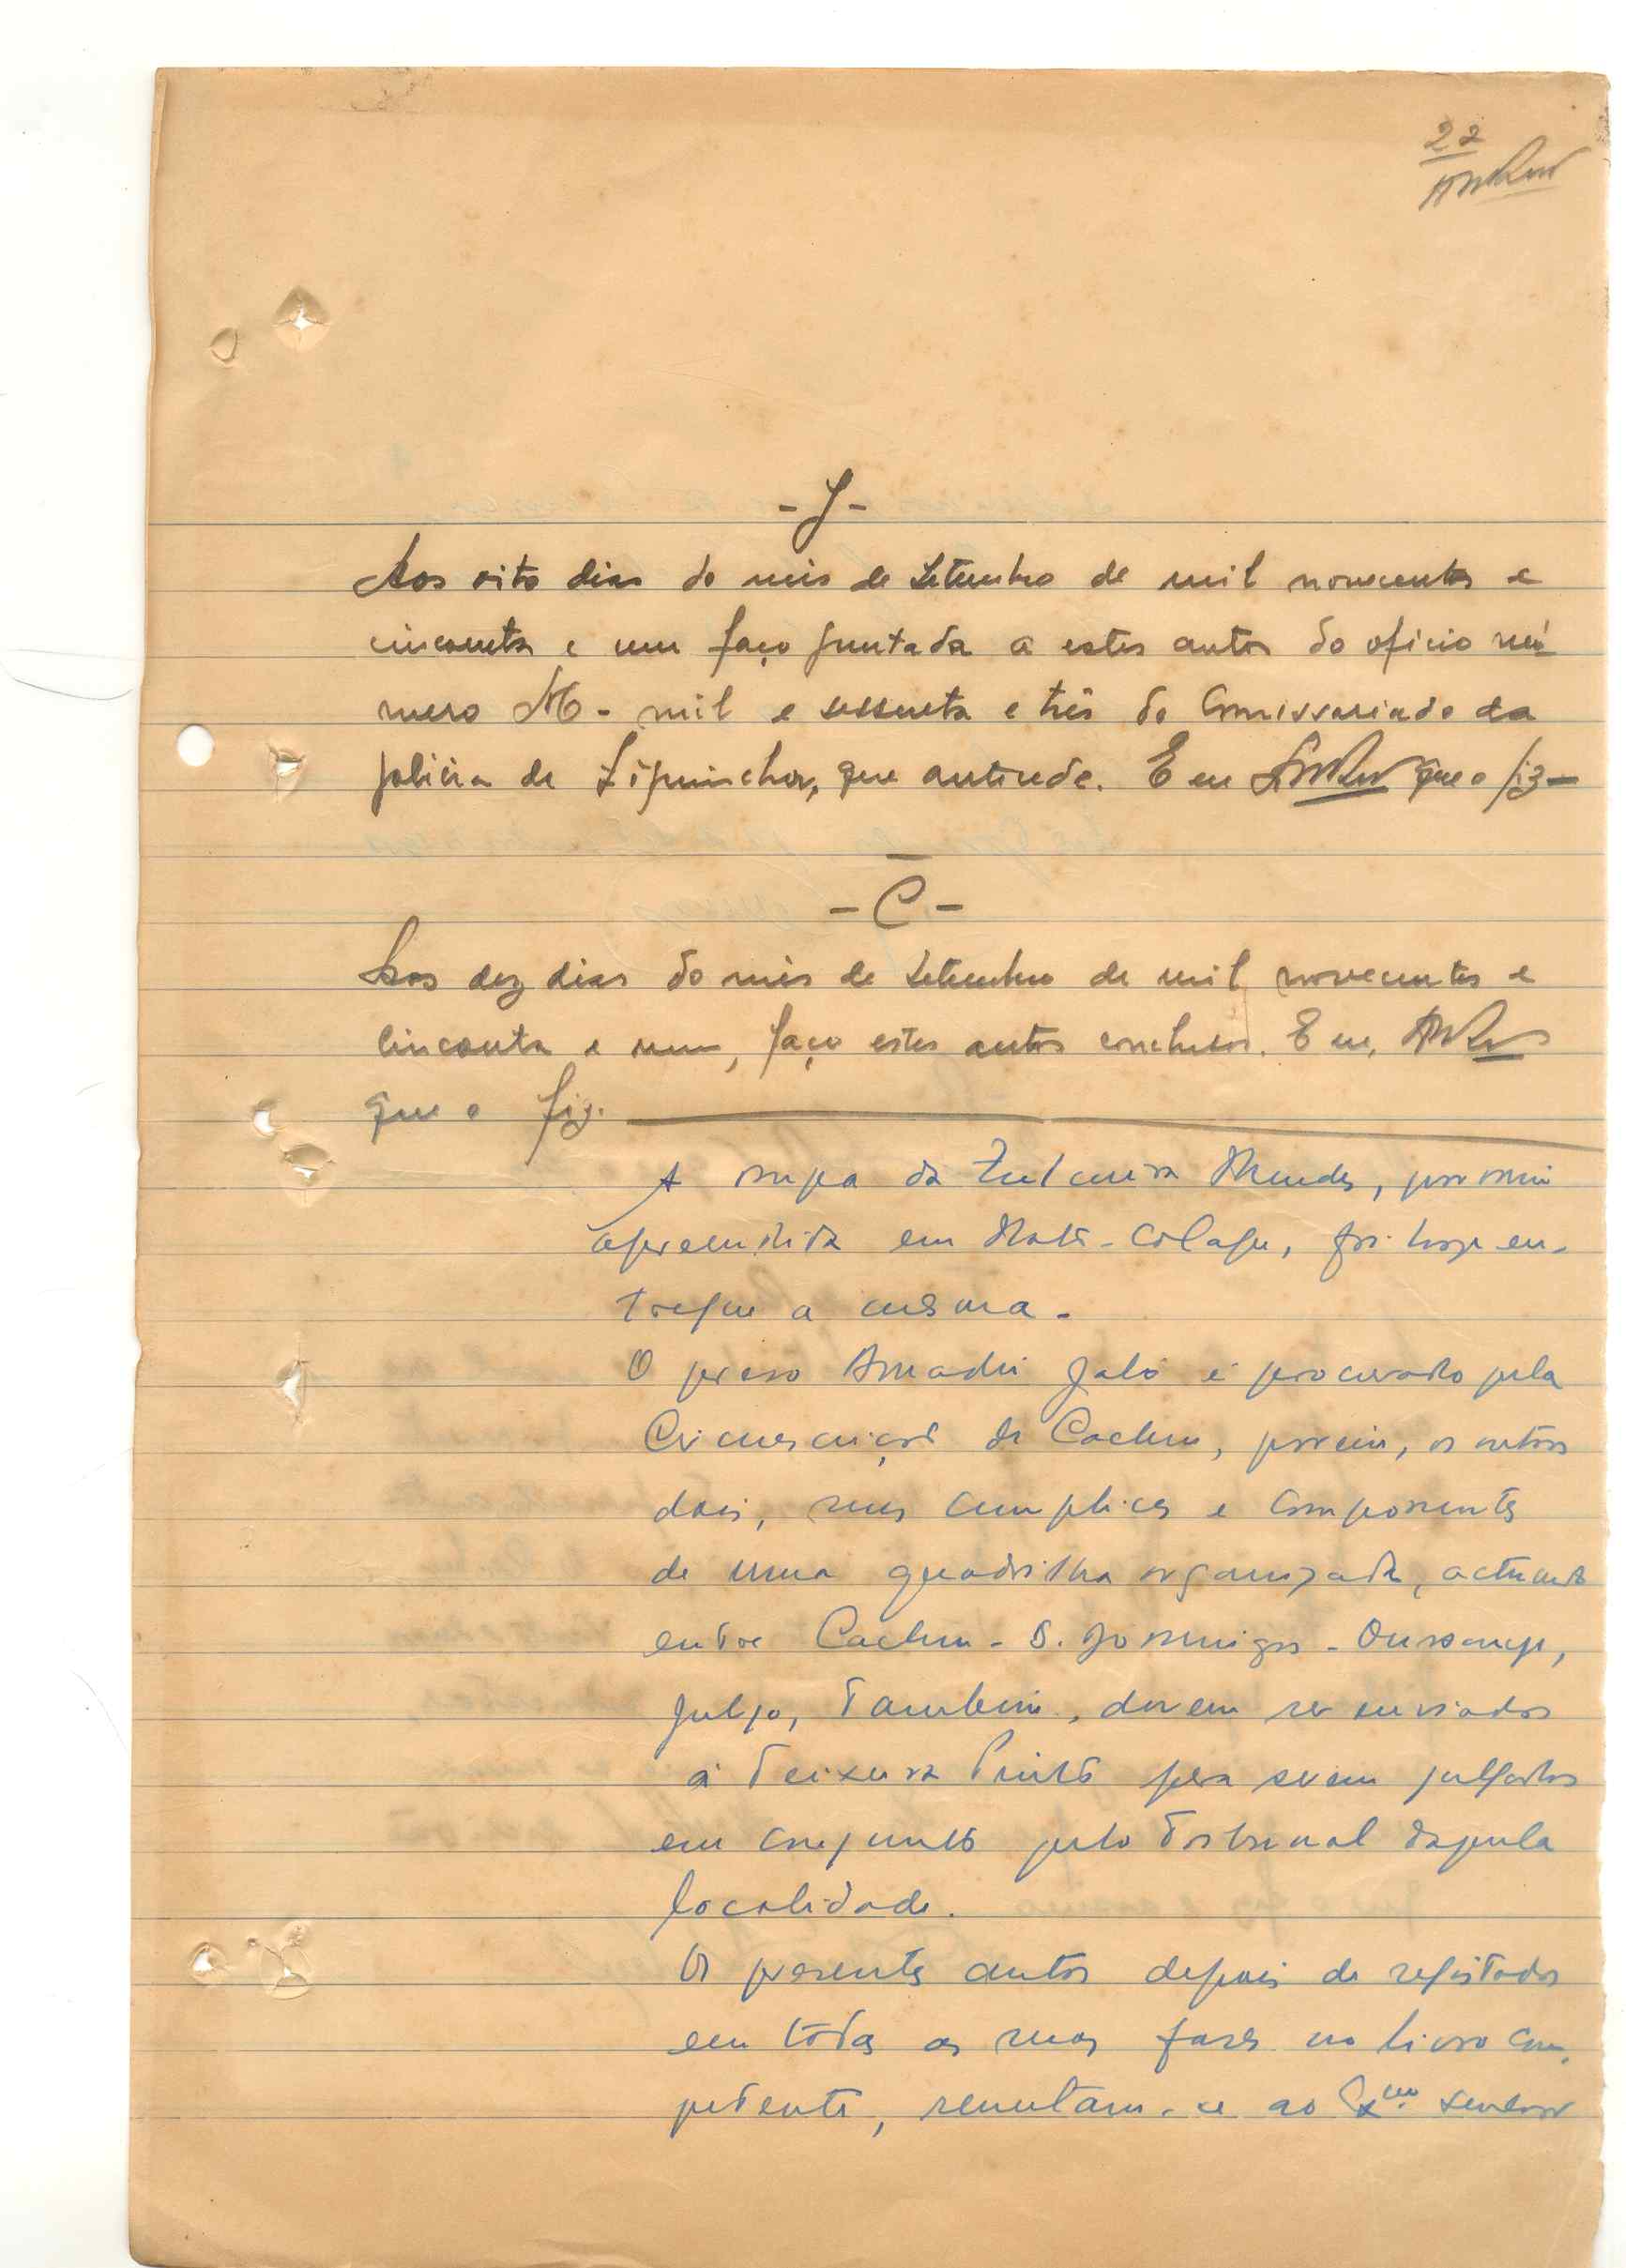 22
- J -
Aos oito dias do mês de Setembro de mil novecentos e
cincoenta e um faço juntada a estes autos do oficio nú-
mero M- mil e sessenta e três do Comissariado da
policia de Ziguinchor, que antecede. E eu que o fiz-
- C -
Aos dez dias do mês de Setembro de mil novecentos e
cincoenta e um, faço estes autos conclusos. E eu,
que o fiz.
A roupa da Mendes, por mim
apreendida em, foi hoje en-
tregue a mesma.
O preso Amadú Jaló é procurado pela
Circunscrição de Cacheu, porém, os outros
dois, seus cumplices e componentes
de uma quadrilha organizada, actuando
entre Cacheu - S. Domingos - Oussouye,
julgo, tambem, devem ser enviados
a Teixeira Pinto para serem julgados
em conjunto pelo Tribunal daquela
localidade.
Os presentes autos depois de registados
em tôdas as suas fases no livro com-
petente, remetam-se ao Exmo. Senhor